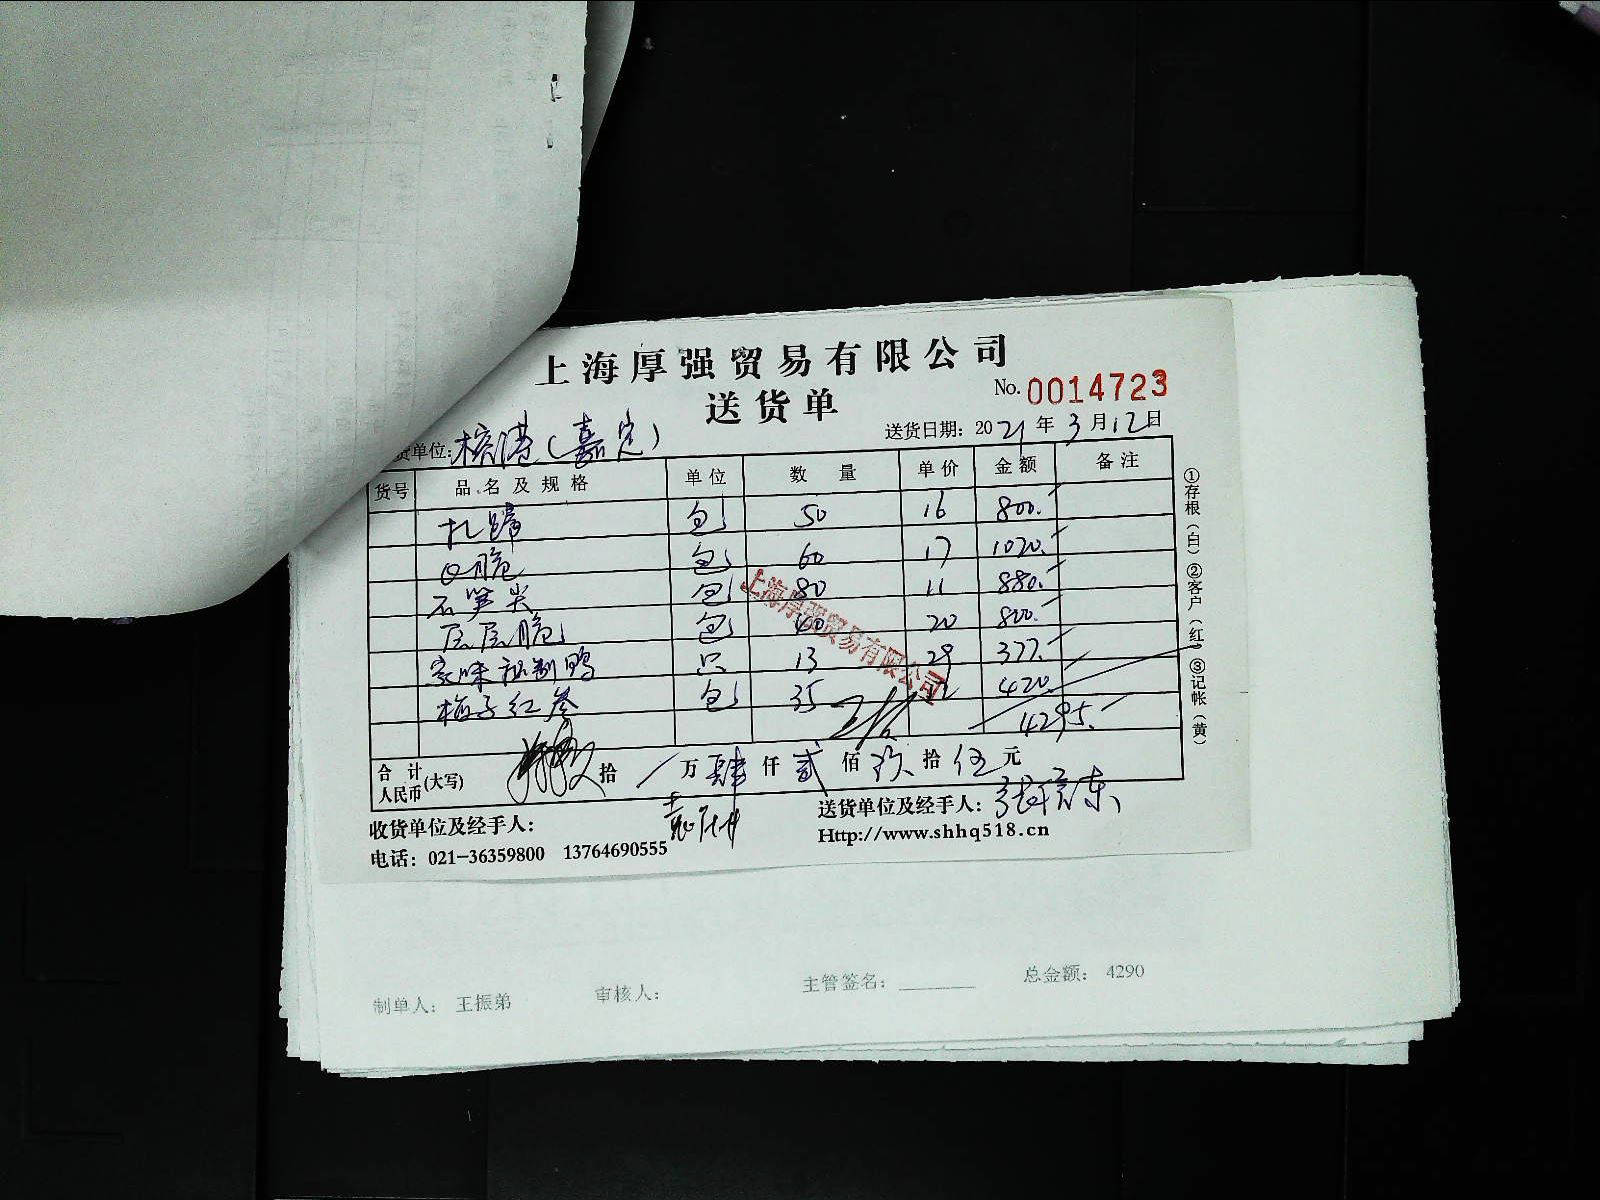 上海厚强贸易有限公司
送货单
No. 0014723
货单位: 榕港(嘉定) 送货日期: 2021年3月12日
货号 品名及规格 单位 数量 单价 金额 备注
扎蹄 包 50 16 800.
Q脆 包 60 17 1020.
石笋尖 包 80 11 880.
层层脆 包 40 20 800.
家味秘制鸭 只 13 29 377.
梅子红参 包 35 12 420.
4295.
合计人民币(大写) 拾 / 万 肆 仟 贰 佰 玖 拾 伍 元
收货单位及经手人:
送货单位及经手人:
电话: 021-36359800 13764690555
Http://www.shhq518.cn
①存根(白)②客户(红)③记帐(黄)
上海厚强贸易有限公司
制单人: 王振弟 审核人: 主管签名: 总金额: 4290